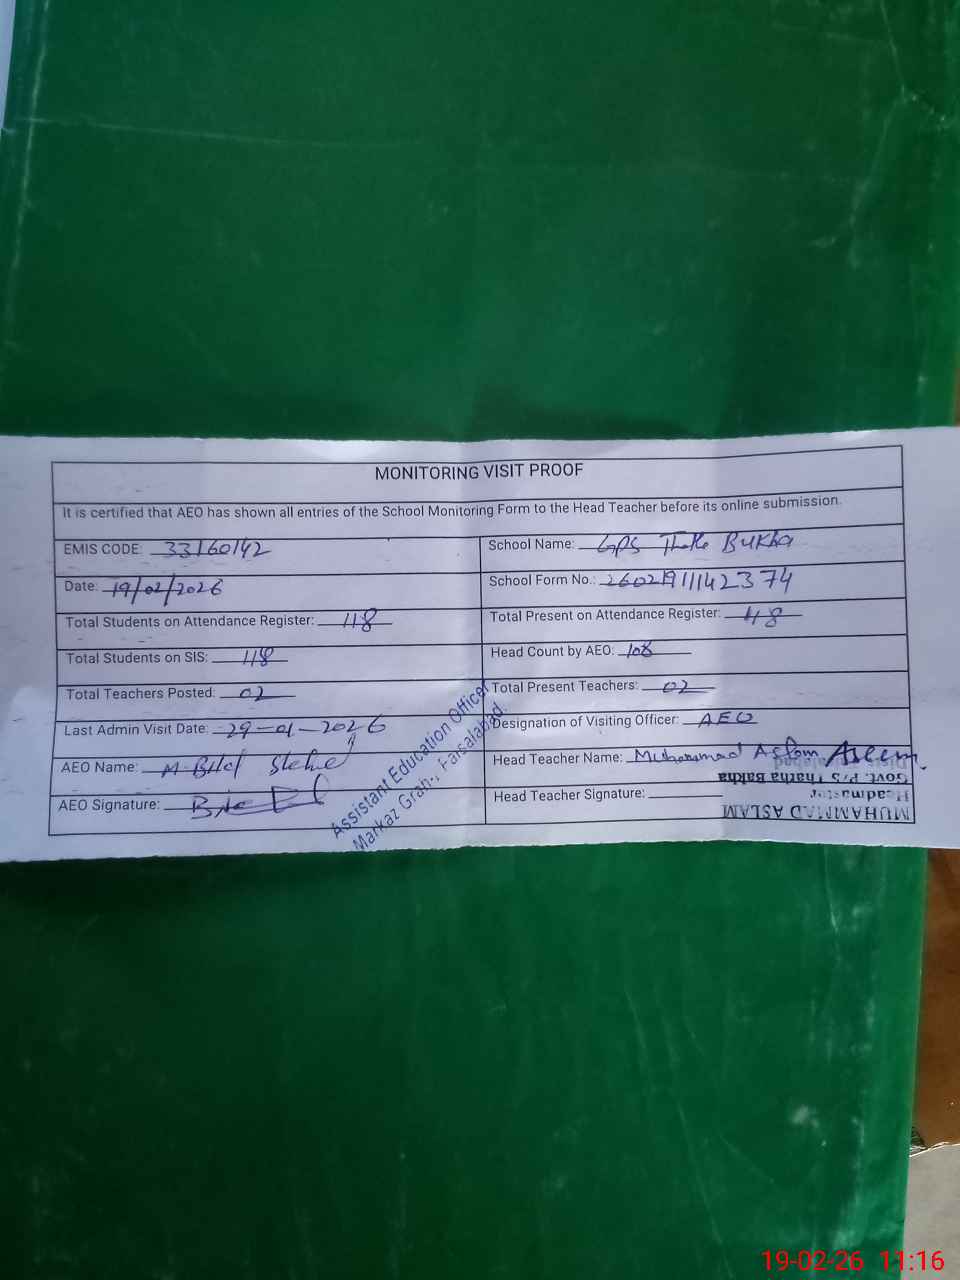 MONITORING VISIT PROOF
It is certified that AEO has shown all entries of the School Monitoring Form to the Head Teacher before its online submission.
EMIS CODE: 33160142
School Name: GPS Bukha
Date: 19/02/2026
School Form No.: 260219111142374
Total Students on Attendance Register: 118
Total Present on Attendance Register:
Total Students on SIS: 118
Head Count by AEO: 108
Total Teachers Posted: 02
Total Present Teachers: 02
Last Admin Visit Date: 29-01-2026
Designation of Visiting Officer: AEO
AEO Name: M. Bilal
Head Teacher Name: Muhammad Aslam
AEO Signature:
Head Teacher Signature:
Assistant Education Officer
Markaz Grah-, Faisalabad.
MUHAMMAD ASLAM
Headmaster
Govt. P/S Thatha Bakha
19-02-26 11:16